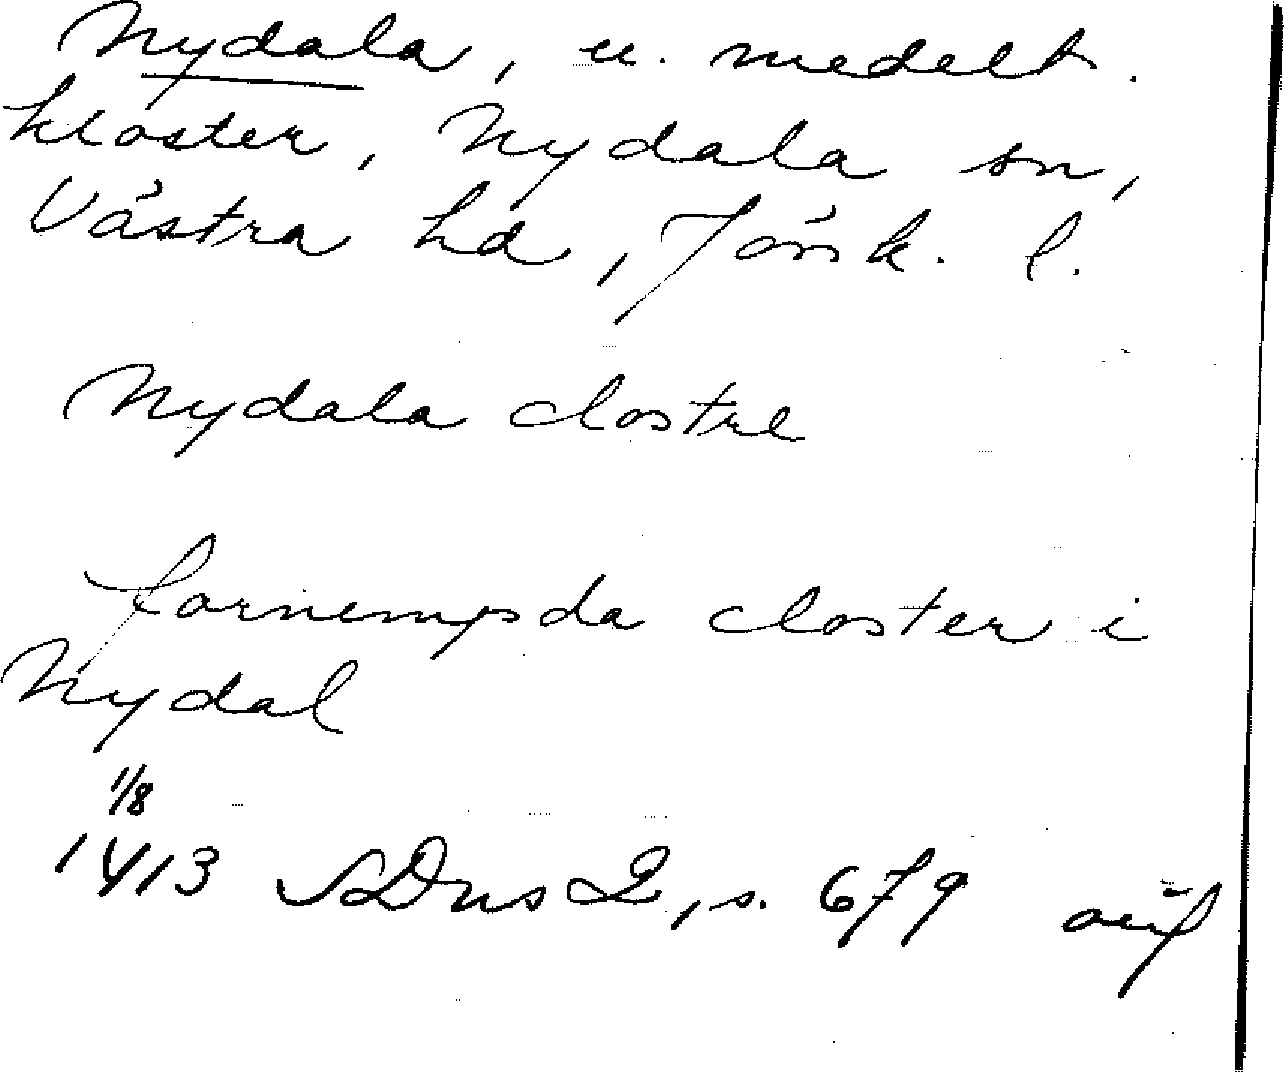 Nydala, u. medelt.
kloster, Nydala sn,
Västra hd, Jönk. l.
Nydala clostre
fornempda closter i
Nydal
1/8
1413 SDns 2, s. 679